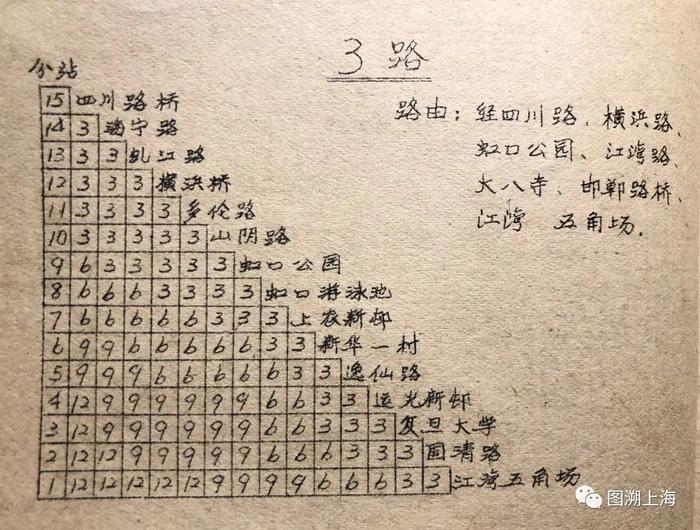 3路
分站
15 四川路桥
14 3 海宁路
13 3 3 虬江路
12 3 3 3 横浜桥
11 3 3 3 3 多伦路
10 3 3 3 3 3 山阴路
9 6 3 3 3 3 3 虹口公园
8 6 6 6 3 3 3 3 虹口游泳池
7 6 6 6 6 6 3 3 3 上农新邨
6 9 9 6 6 6 6 6 3 3 新华一村
5 9 9 9 6 6 6 6 6 3 3 逸仙路
4 12 9 9 9 9 9 9 6 6 3 3 运光新邨
3 12 9 9 9 9 9 9 6 6 3 3 3 复旦大学
2 12 12 9 9 9 9 9 6 6 6 3 3 3 国清路
1 12 12 12 12 12 9 9 9 9 6 6 6 3 3 江湾五角场
路由：经四川路、横浜路、
虹口公园、江湾路、
大八寺、邯郸路桥、
江湾 五角场.
图溯上海